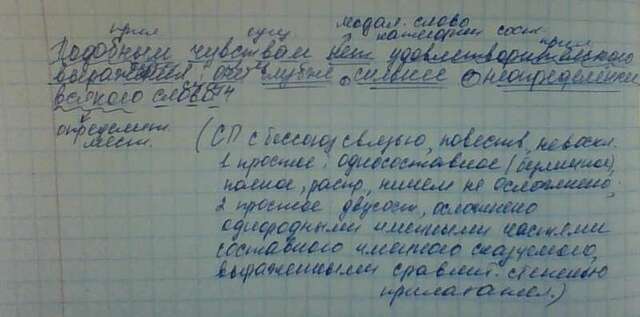 прил. сущ модал. слово
категория сост
Подобным чувствам нет удовлетворительного
прил.
выражения: они глубже, сильнее, неопределеннее
всякого слова
определит.
мест.
(СП с бессоюз связью, повеств, невоскл.
1 простое: односоставное (безличное),
полное, распр., ничем не осложнено;
2 простое двусост, осложнено
однородными именными частями
составного именного сказуемого,
выраженными сравнит. степенью
прилагател.)